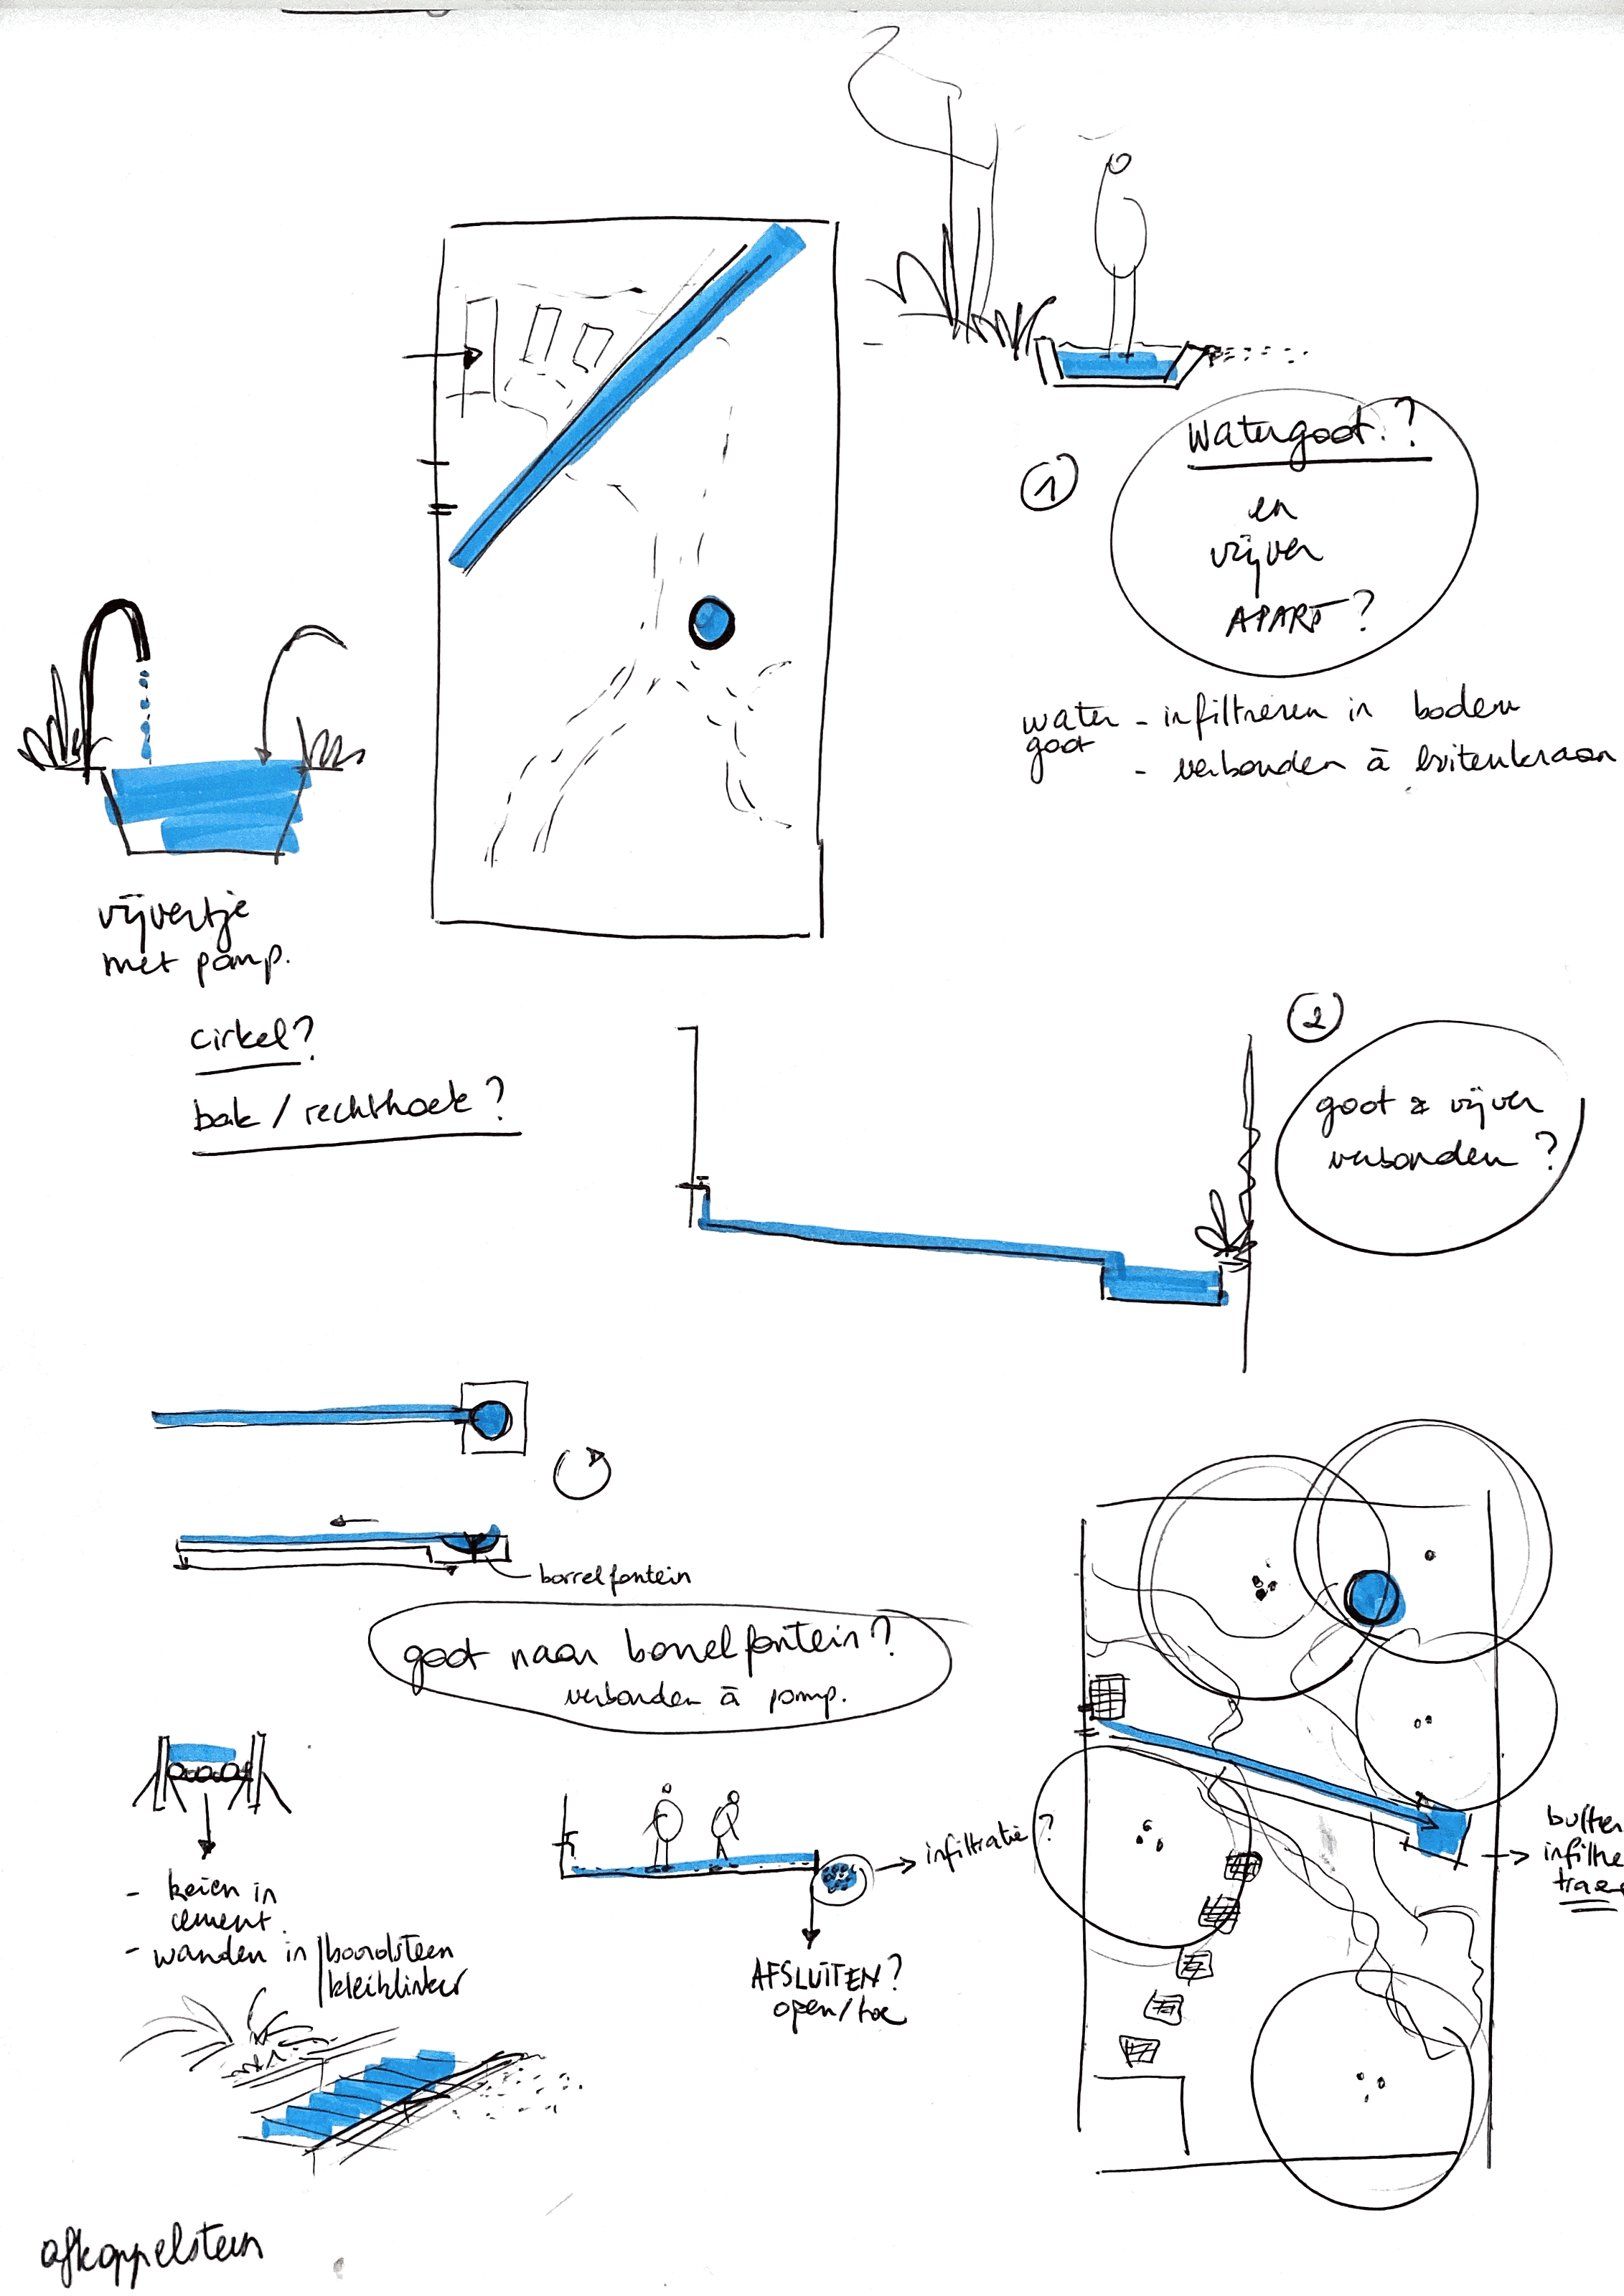 1
Watergoot?
en
vijver
APART?
water - infiltreren in bodem
goot
- verbonden à buitenkraan
vijvertje
met pomp.
cirkel?
bak / rechthoek?
2
goot & vijver
verbonden?
borrelfontein
goot naar borrelfontein?
verbonden à pomp.
infiltratie?
- keien in
cement.
- wanden in boordsteen
kleiklinker
AFSLUITEN?
open/toe
buffer
infiltre
traag
afkoppelsteen